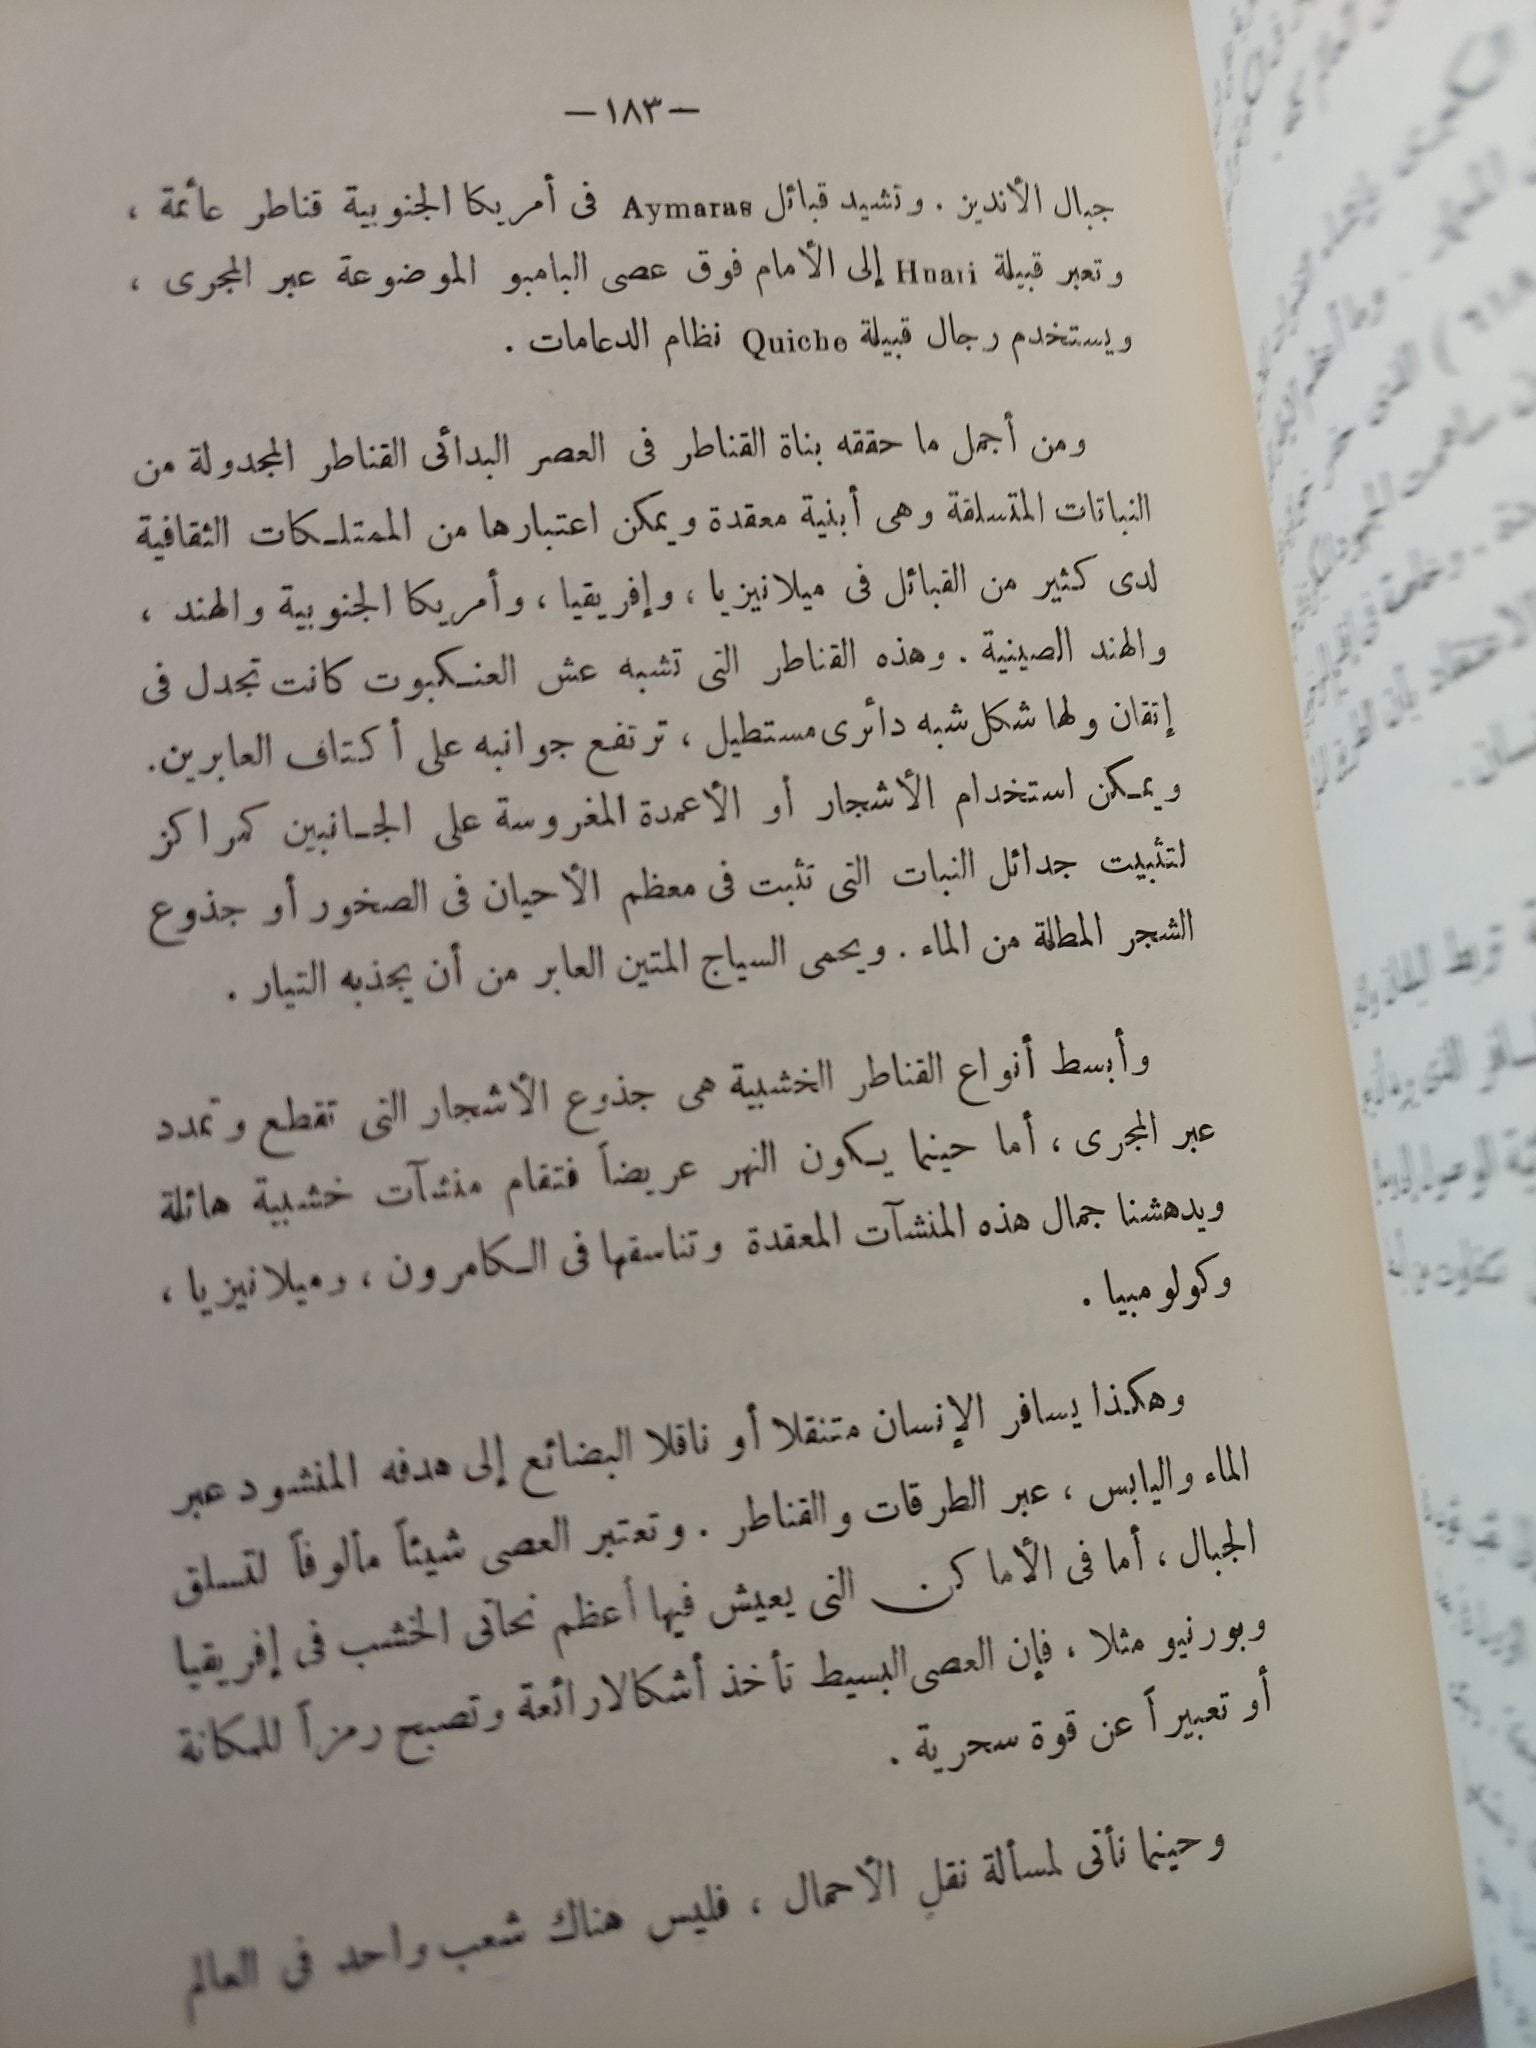 — ١٨٣ —
جبال الأندين . وتشيد قبائل Aymaras فى أمريكا الجنوبية قناطر عائمة ،
وتعبر قبيلة Huari إلى الأمام فوق عصى البامبو الموضوعة عبر المجرى ،
ويستخدم رجال قبيلة Quiche نظام الدعامات .
ومن أجمل ما حققه بناة القناطر فى العصر البدائى القناطر المجدولة من
النباتات المتسلقة وهى أبنية معقدة ويمكن اعتبارها من الممتلكات الثقافية
لدى كثير من القبائل فى ميلانيزيا ، وإفريقيا ، وأمريكا الجنوبية والهند ،
والهند الصينية . وهذه القناطر التى تشبه عش العنكبوت كانت تجدل فى
إتقان ولها شكل شبه دائرى مستطيل ، ترتفع جوانبه على أكتاف العابرين.
ويمكن استخدام الأشجار أو الأعمدة المغروسة على الجانبين كمراكز
لتثبيت جدائل النبات التى تثبت فى معظم الأحيان فى الصخور أو جذوع
الشجر المطلة من الماء . ويحمى السياج المتين العابر من أن يجذبه التيار .
وأبسط أنواع القناطر الخشبية هى جذوع الأشجار التى تقطع وتمدد
عبر المجرى ، أما حينما يكون النهر عريضاً فتقام منشآت خشبية هائلة
ويدهشنا جمال هذه المنشآت المعقدة وتناسقها فى الكامرون ، وميلانيزيا ،
وكولومبيا .
وهكذا يسافر الإنسان متنقلا أو ناقلا البضائع إلى هدفه المنشود عبر
الماء واليابس ، عبر الطرقات والقناطر . وتعتبر العصى شيئاً مألوفاً لتسلق
الجبال ، أما فى الأماكن التى يعيش فيها أعظم نحاتى الخشب فى إفريقيا
وبورنيو مثلا ، فإن العصى البسيط تأخذ أشكالا رائعة وتصبح رمزاً للمكانة
أو تعبيراً عن قوة سحرية .
وحينما نأتى لمسألة نقل الأحمال ، فليس هناك شعب واحد فى العالم